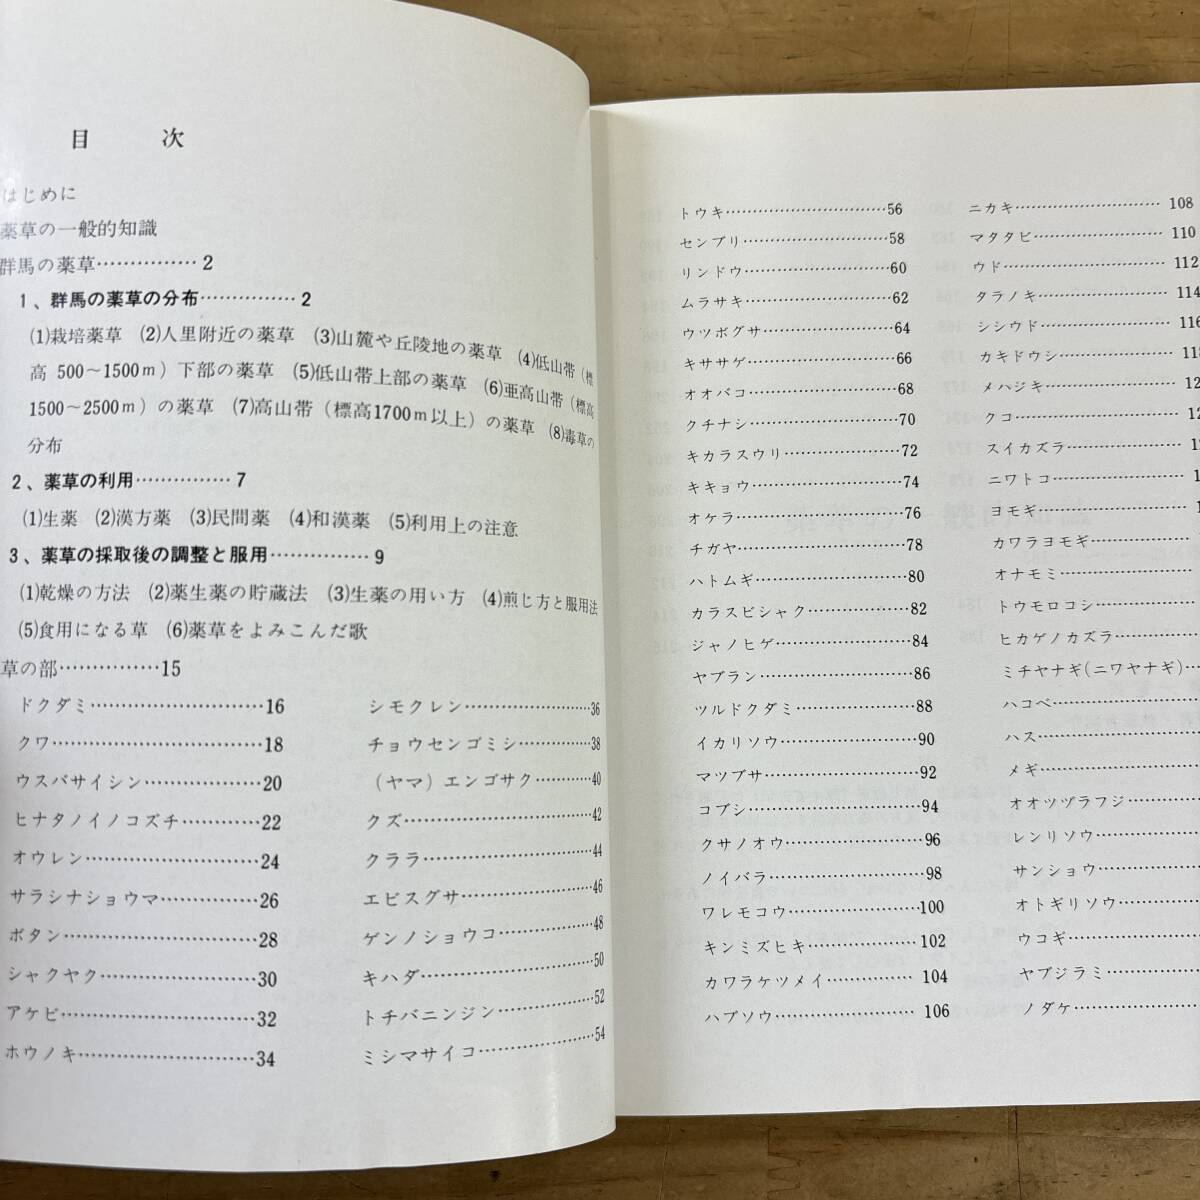 目　次
はじめに
薬草の一般的知識
群馬の薬草……………2
1、群馬の薬草の分布……………2
⑴栽培薬草　⑵人里附近の薬草　⑶山麓や丘陵地の薬草　⑷低山帯（標
高 500～1500m）下部の薬草　⑸低山帯上部の薬草　⑹亜高山帯（標高
1500～2500m）の薬草　⑺高山帯（標高1700m以上）の薬草　⑻毒草の
分布
2、薬草の利用……………7
⑴生薬　⑵漢方薬　⑶民間薬　⑷和漢薬　⑸利用上の注意
3、薬草の採取後の調整と服用……………9
⑴乾燥の方法　⑵薬生薬の貯蔵法　⑶生薬の用い方　⑷煎じ方と服用法
⑸食用になる草　⑹薬草をよみこんだ歌
草の部……………15
ドクダミ……………16
クワ……………18
ウスバサイシン……………20
ヒナタノイノコズチ……………22
オウレン……………24
サラシナショウマ……………26
ボタン……………28
シャクヤク……………30
アケビ……………32
ホウノキ……………34
シモクレン……………36
チョウセンゴミシ……………38
（ヤマ）エンゴサク……………40
クズ……………42
クララ……………44
エビスグサ……………46
ゲンノショウコ……………48
キハダ……………50
トチバニンジン……………52
ミシマサイコ……………54
トウキ……………56
センブリ……………58
リンドウ……………60
ムラサキ……………62
ウツボグサ……………64
キササゲ……………66
オオバコ……………68
クチナシ……………70
キカラスウリ……………72
キキョウ……………74
オケラ……………76
チガヤ……………78
ハトムギ……………80
カラスビシャク……………82
ジャノヒゲ……………84
ヤブラン……………86
ツルドクダミ……………88
イカリソウ……………90
マツブサ……………92
コブシ……………94
クサノオウ……………96
ノイバラ……………98
ワレモコウ……………100
キンミズヒキ……………102
カワラケツメイ……………104
ハブソウ……………106
ニカキ……………108
マタタビ……………110
ウド……………112
タラノキ……………114
シシウド……………116
カキドウシ……………118
メハジキ……………12
クコ……………12
スイカズラ……………12
ニワトコ……………1
ヨモギ……………1
カワラヨモギ……………
オナモミ……………
トウモロコシ……………
ヒカゲノカズラ……………
ミチヤナギ(ニワヤナギ)……………
ハコベ……………
ハス……………
メギ……………
オオツヅラフジ……………
レンリソウ……………
サンショウ……………
オトギリソウ……………
ウコギ……………
ヤブジラミ……………
ノダケ……………